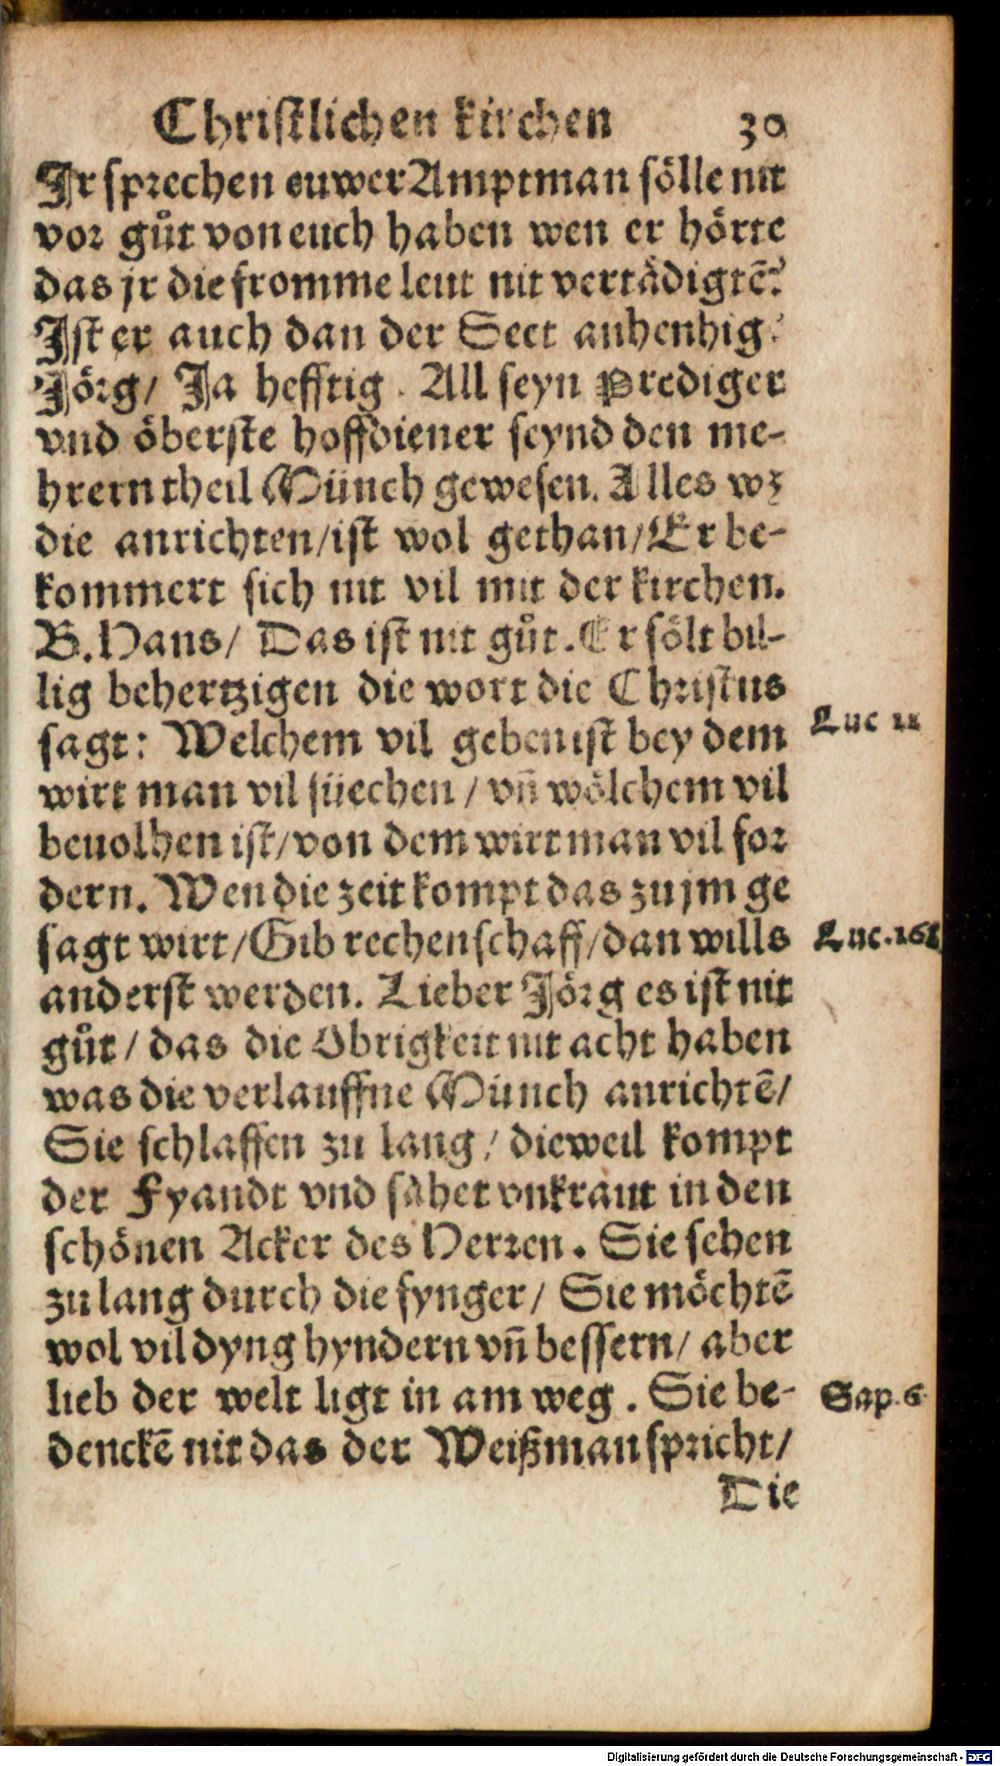 Christlichen kirchen 30
Jr sprechen euwer Amptman sölle nit
vor gůt von euch haben wen er hörte
das jr die fromme leut nit vertädigtē?
Ist er auch dan der Sect anhenhig?
Jörg/ Ja hefftig. All seyn Prediger
vnd öberste hoffdiener seynd den me-
hrern theil Münch gewesen. Alles wz
die anrichten/ist wol gethan/Er be-
kommert sich nit vil mit der kirchen.
B. Hans/ Das ist nit gůt. Er sölt bil-
lig behertzigen die wort die Christus
sagt: Welchem vil geben ist bey dem
Luc 12
wirt man vil süechen / vñ wölchem vil
beuolhen ist/von dem wirt man vil for
dern. Wen die zeit kompt das zu jm ge
sagt wirt/Gib rechenschaff/dan wills
Luc. 16
anderst werden. Lieber Jörg es ist nit
gůt/ das die Obrigkeit nit acht haben
was die verlauffne Münch anrichtē/
Sie schlaffen zu lang/ dieweil kompt
der Fyandt vnd sähet vnkraut in den
schönen Acker des Herren. Sie sehen
zu lang durch die fynger/ Sie möchtē
wol vil dyng hyndern vñ bessern/ aber
lieb der welt ligt in am weg. Sie be-
Sap. 6
denckē nit das der Weißman spricht/
Die
Digitalisierung gefördert durch die Deutsche Forschungsgemeinschaft - DFG